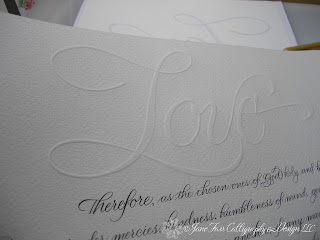 Love
Therefore, as the chosen ones of God, holy and b
les, mercies, kindness, humbleness of mind, gen
and
©Jane Farr Calligraphy & Design LLC